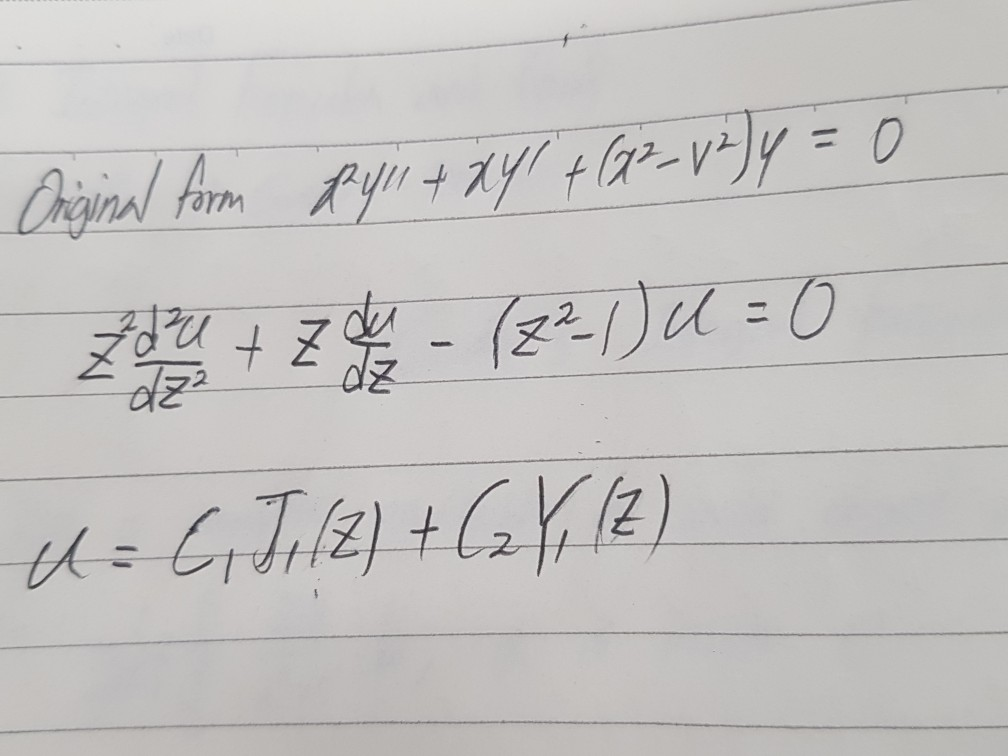 Original form x²y'' + xy' + (x² - v²)y = 0
z² d²u/dz² + z du/dz - (z² - 1) u = 0
u = C₁J₁(z) + C₂Y₁(z)